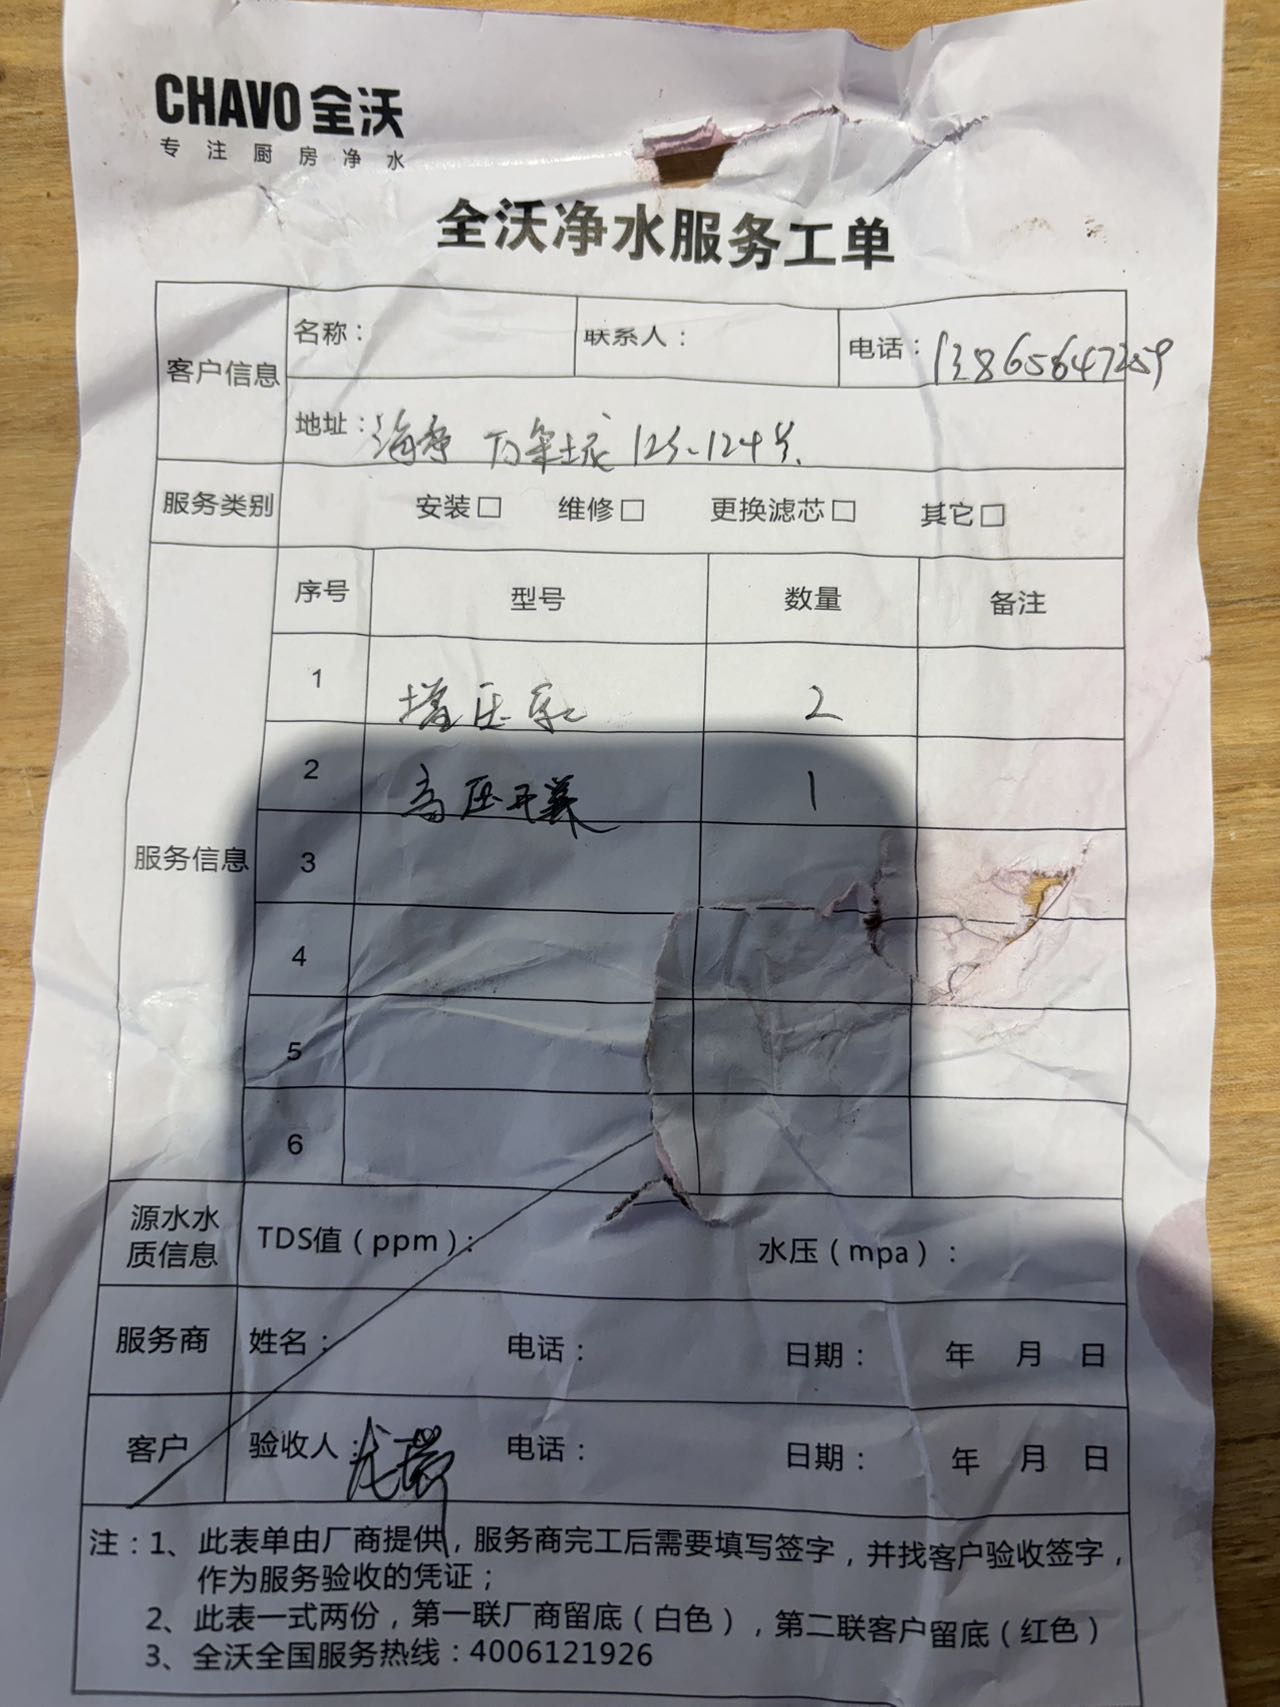 CHAVO 全沃
专注厨房净水
全沃净水服务工单
客户信息
名称：
联系人：
电话：13865647259
地址：海亭 万象城 123-124号
服务类别
安装□ 维修□ 更换滤芯□ 其它□
服务信息
序号 型号 数量 备注
1 增压泵 2
2 高压开关 1
3
4
5
6
源水水质信息
TDS值（ppm）：
水压（mpa）：
服务商
姓名： 电话： 日期： 年 月 日
客户
验收人： 电话： 日期： 年 月 日
注：1、此表单由厂商提供，服务商完工后需要填写签字，并找客户验收签字，
作为服务验收的凭证；
2、此表一式两份，第一联厂商留底（白色），第二联客户留底（红色）
3、全沃全国服务热线：4006121926